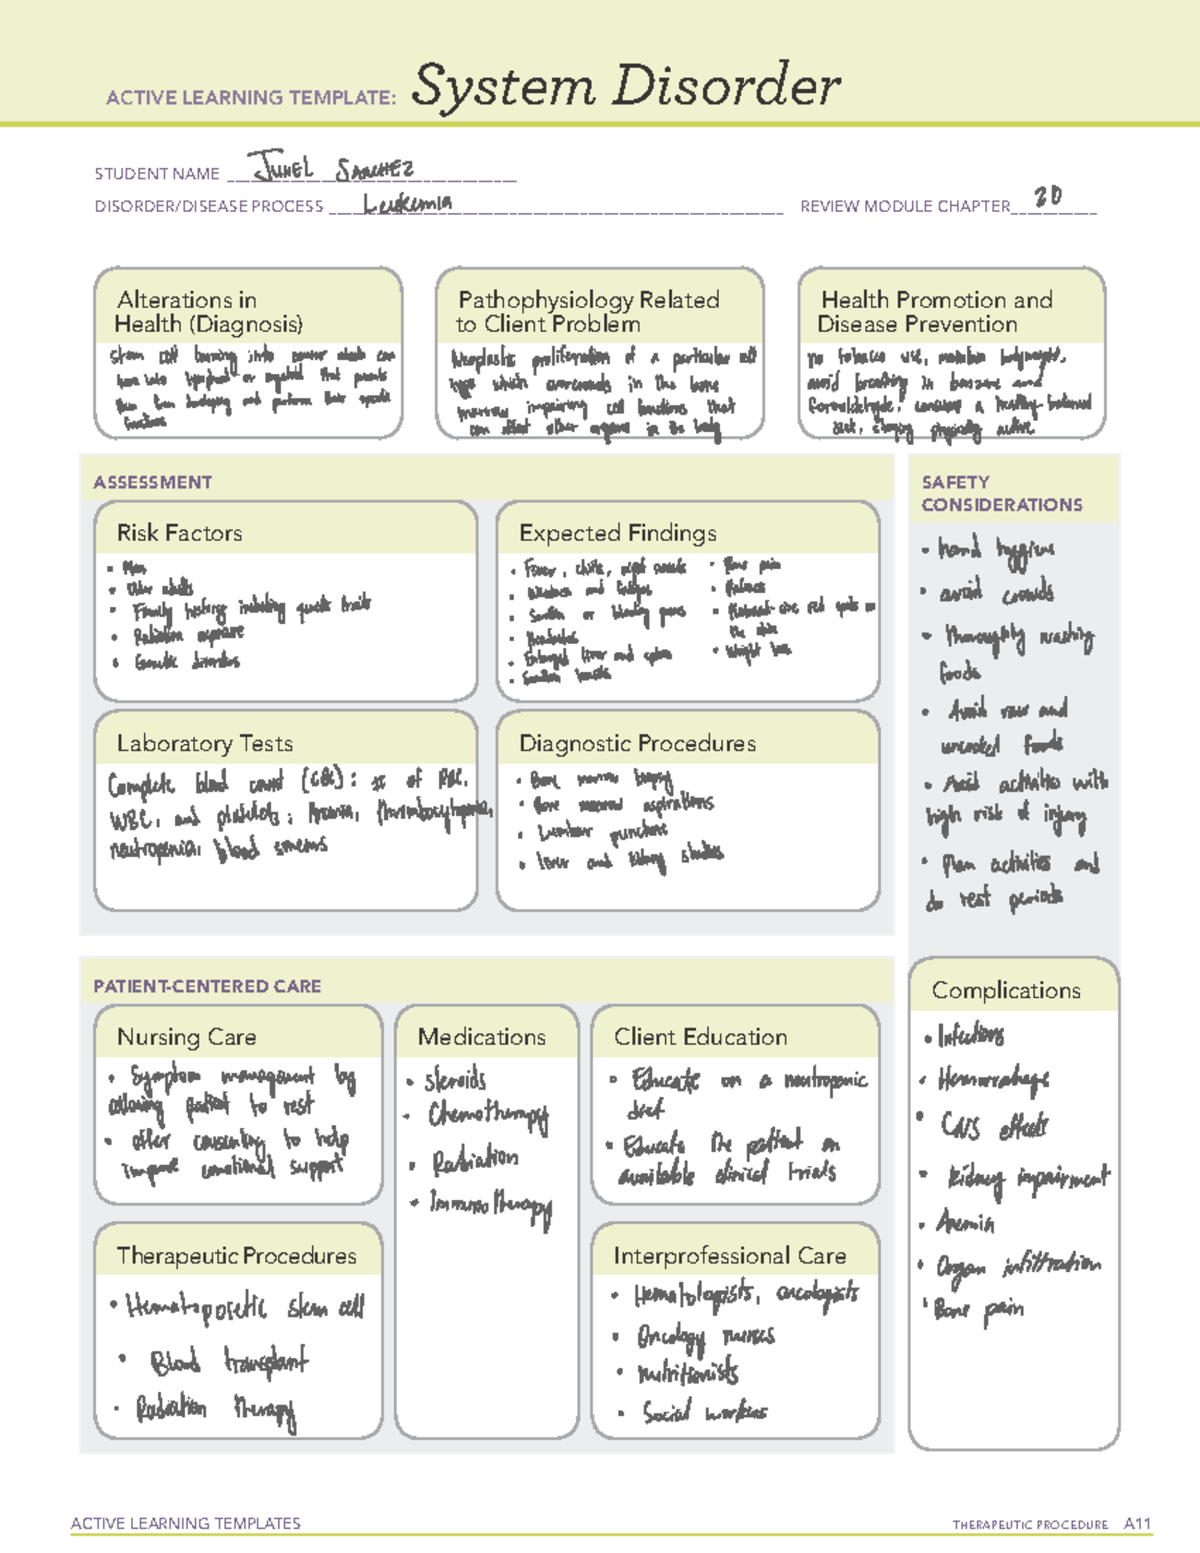 ACTIVE LEARNING TEMPLATE: System Disorder
STUDENT NAME Junel Sanchez
DISORDER/DISEASE PROCESS Leukemia
REVIEW MODULE CHAPTER 20
Alterations in
Health (Diagnosis)
Stem cell turning into cancer which can
turn into lymphoid or myeloid that prevents
them from developing and perform their specific
functions
Pathophysiology Related
to Client Problem
Neoplastic proliferation of a particular cell
type which overcrowds in the bone
marrow impairing cell functions that
can affect other organs in the body
Health Promotion and
Disease Prevention
no tobacco use, maintain bodyweight,
avoid breathing in benzene and
formaldehyde, consume a healthy-balanced
diet, staying physically active
ASSESSMENT
Risk Factors
• Men
• Older adults
• Family history including genetic traits
• Radiation exposure
• Genetic disorders
Expected Findings
• Fever, chills, night sweats
• Weakness and fatigue
• Swollen or bleeding gums
• Headaches
• Enlarged liver and spleen
• Swollen tonsils
• Bone pain
• Paleness
• Pinhead-size red spots on
the skin
• Weight loss
Laboratory Tests
Complete blood count (CBC): # of RBC,
WBC, and platelets; Anemia, thrombocytopenia,
neutropenia, blood smears
Diagnostic Procedures
• Bone marrow biopsy
• Bone marrow aspirations
• Lumbar puncture
• liver and kidney studies
SAFETY
CONSIDERATIONS
• hand hygiene
• avoid crowds
• thoroughly washing
foods
• Avoid raw and
uncooked foods
• Avoid activities with
high risk of injury
• Plan activities and
do rest periods
PATIENT-CENTERED CARE
Nursing Care
• Symptom management by
allowing patient to rest
• offer counseling to help
improve emotional support
Medications
• Steroids
• Chemotherapy
• Radiation
• Immunotherapy
Client Education
• Educate on a neutropenic
diet
• Educate the patient on
available clinical trials
Therapeutic Procedures
• Hematopoietic stem cell
• Blood transplant
• Radiation Therapy
Interprofessional Care
• Hematologists, oncologists
• Oncology nurses
• nutritionists
• Social workers
Complications
• Infections
• Hemorrhage
• CNS effects
• Kidney impairment
• Anemia
• Organ infiltration
• Bone pain
ACTIVE LEARNING TEMPLATES
THERAPEUTIC PROCEDURE A11